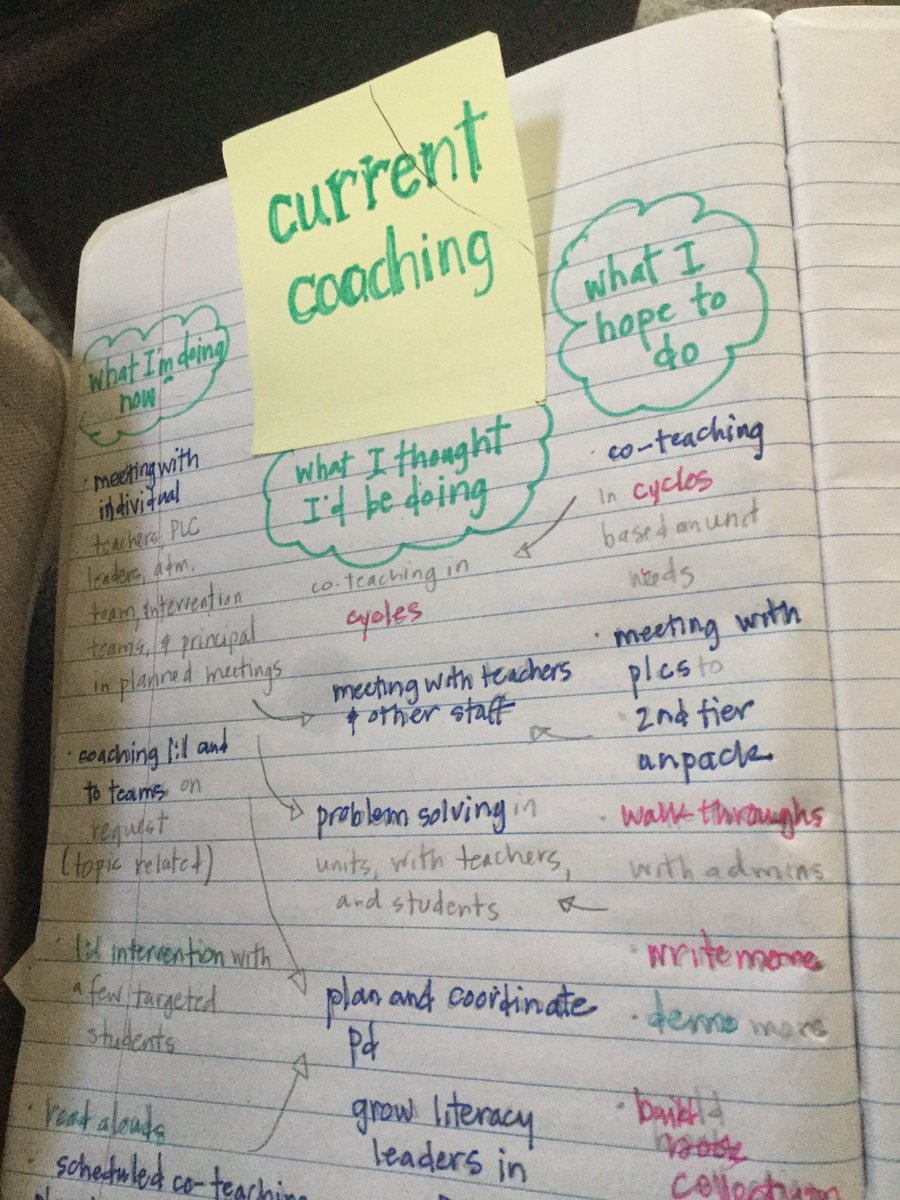 current
coaching
what I'm doing
now
meeting with
individual
teachers, PLC
leaders, adm.
team, intervention
teams, & principal
in planned meetings
coaching 1:1 and
to teams on
request
(topic related)
1:1 intervention with
a few targeted
students
read alouds
scheduled co-teaching
what I thought
I'd be doing
co-teaching in
cycles
meeting with teachers
& other staff
problem solving in
units, with teachers,
and students
plan and coordinate
pd
grow literacy
leaders in
what I
hope to
do
co-teaching
in cycles
based on unit
needs
meeting with
plcs to
2nd tier
unpack
walk-throughs
with admins
write more
demo more
build
book
collection